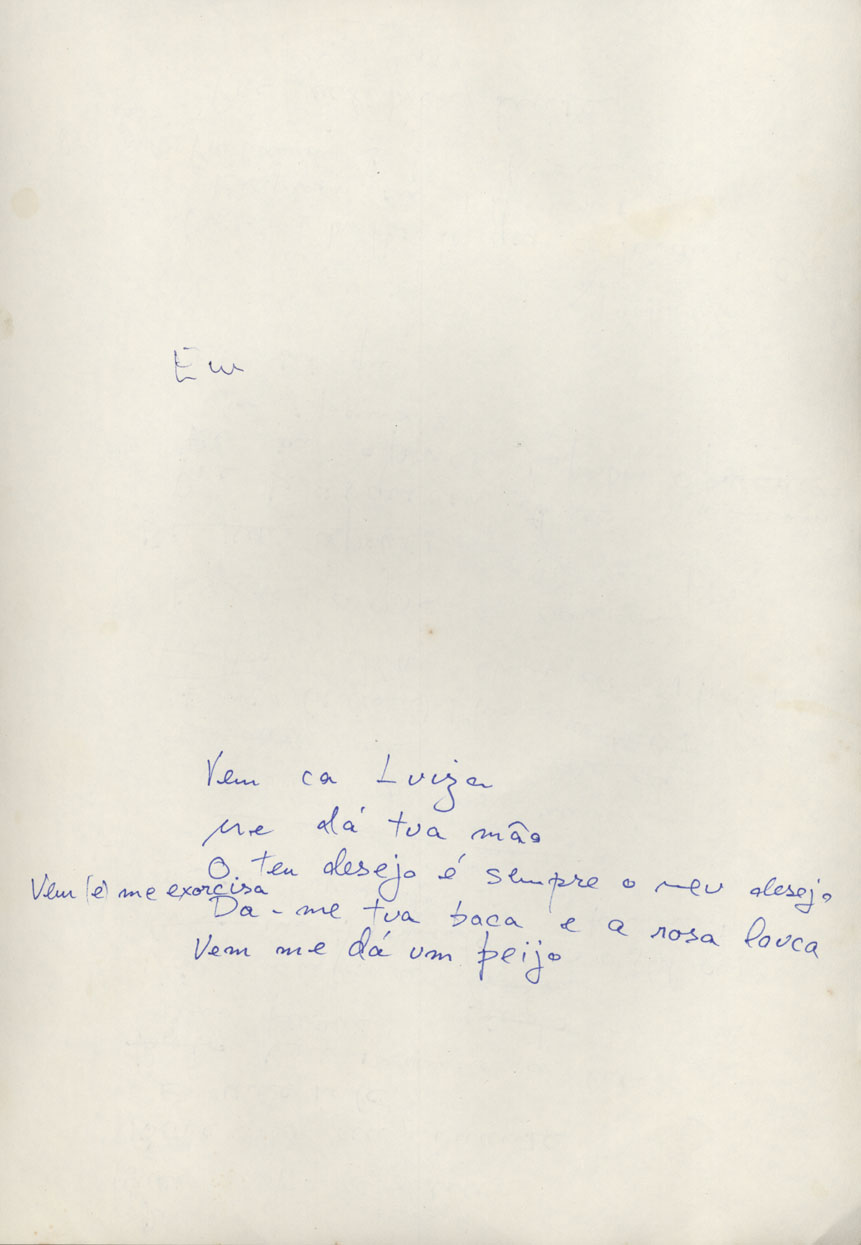 Eu
Vem ca Luiza
Me dá tua mão
O teu desejo é sempre o meu desejo
Vem (e) me exorcisa
Da-me tua boca e a rosa louca
Vem me dá um beijo